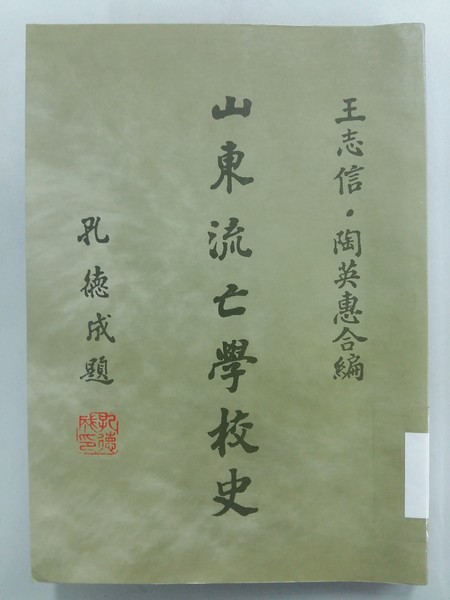 王志信・陶英惠合編
山東流亡學校史
孔德成題
孔德成印